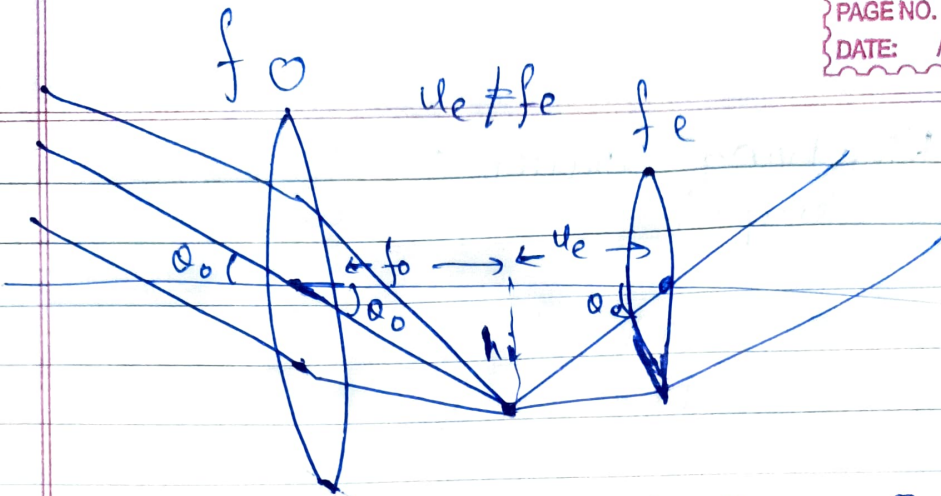 PAGE NO.
DATE:
fo
ue ≠ fe
fe
θo
← fo →
← ue →
θo
θ
h